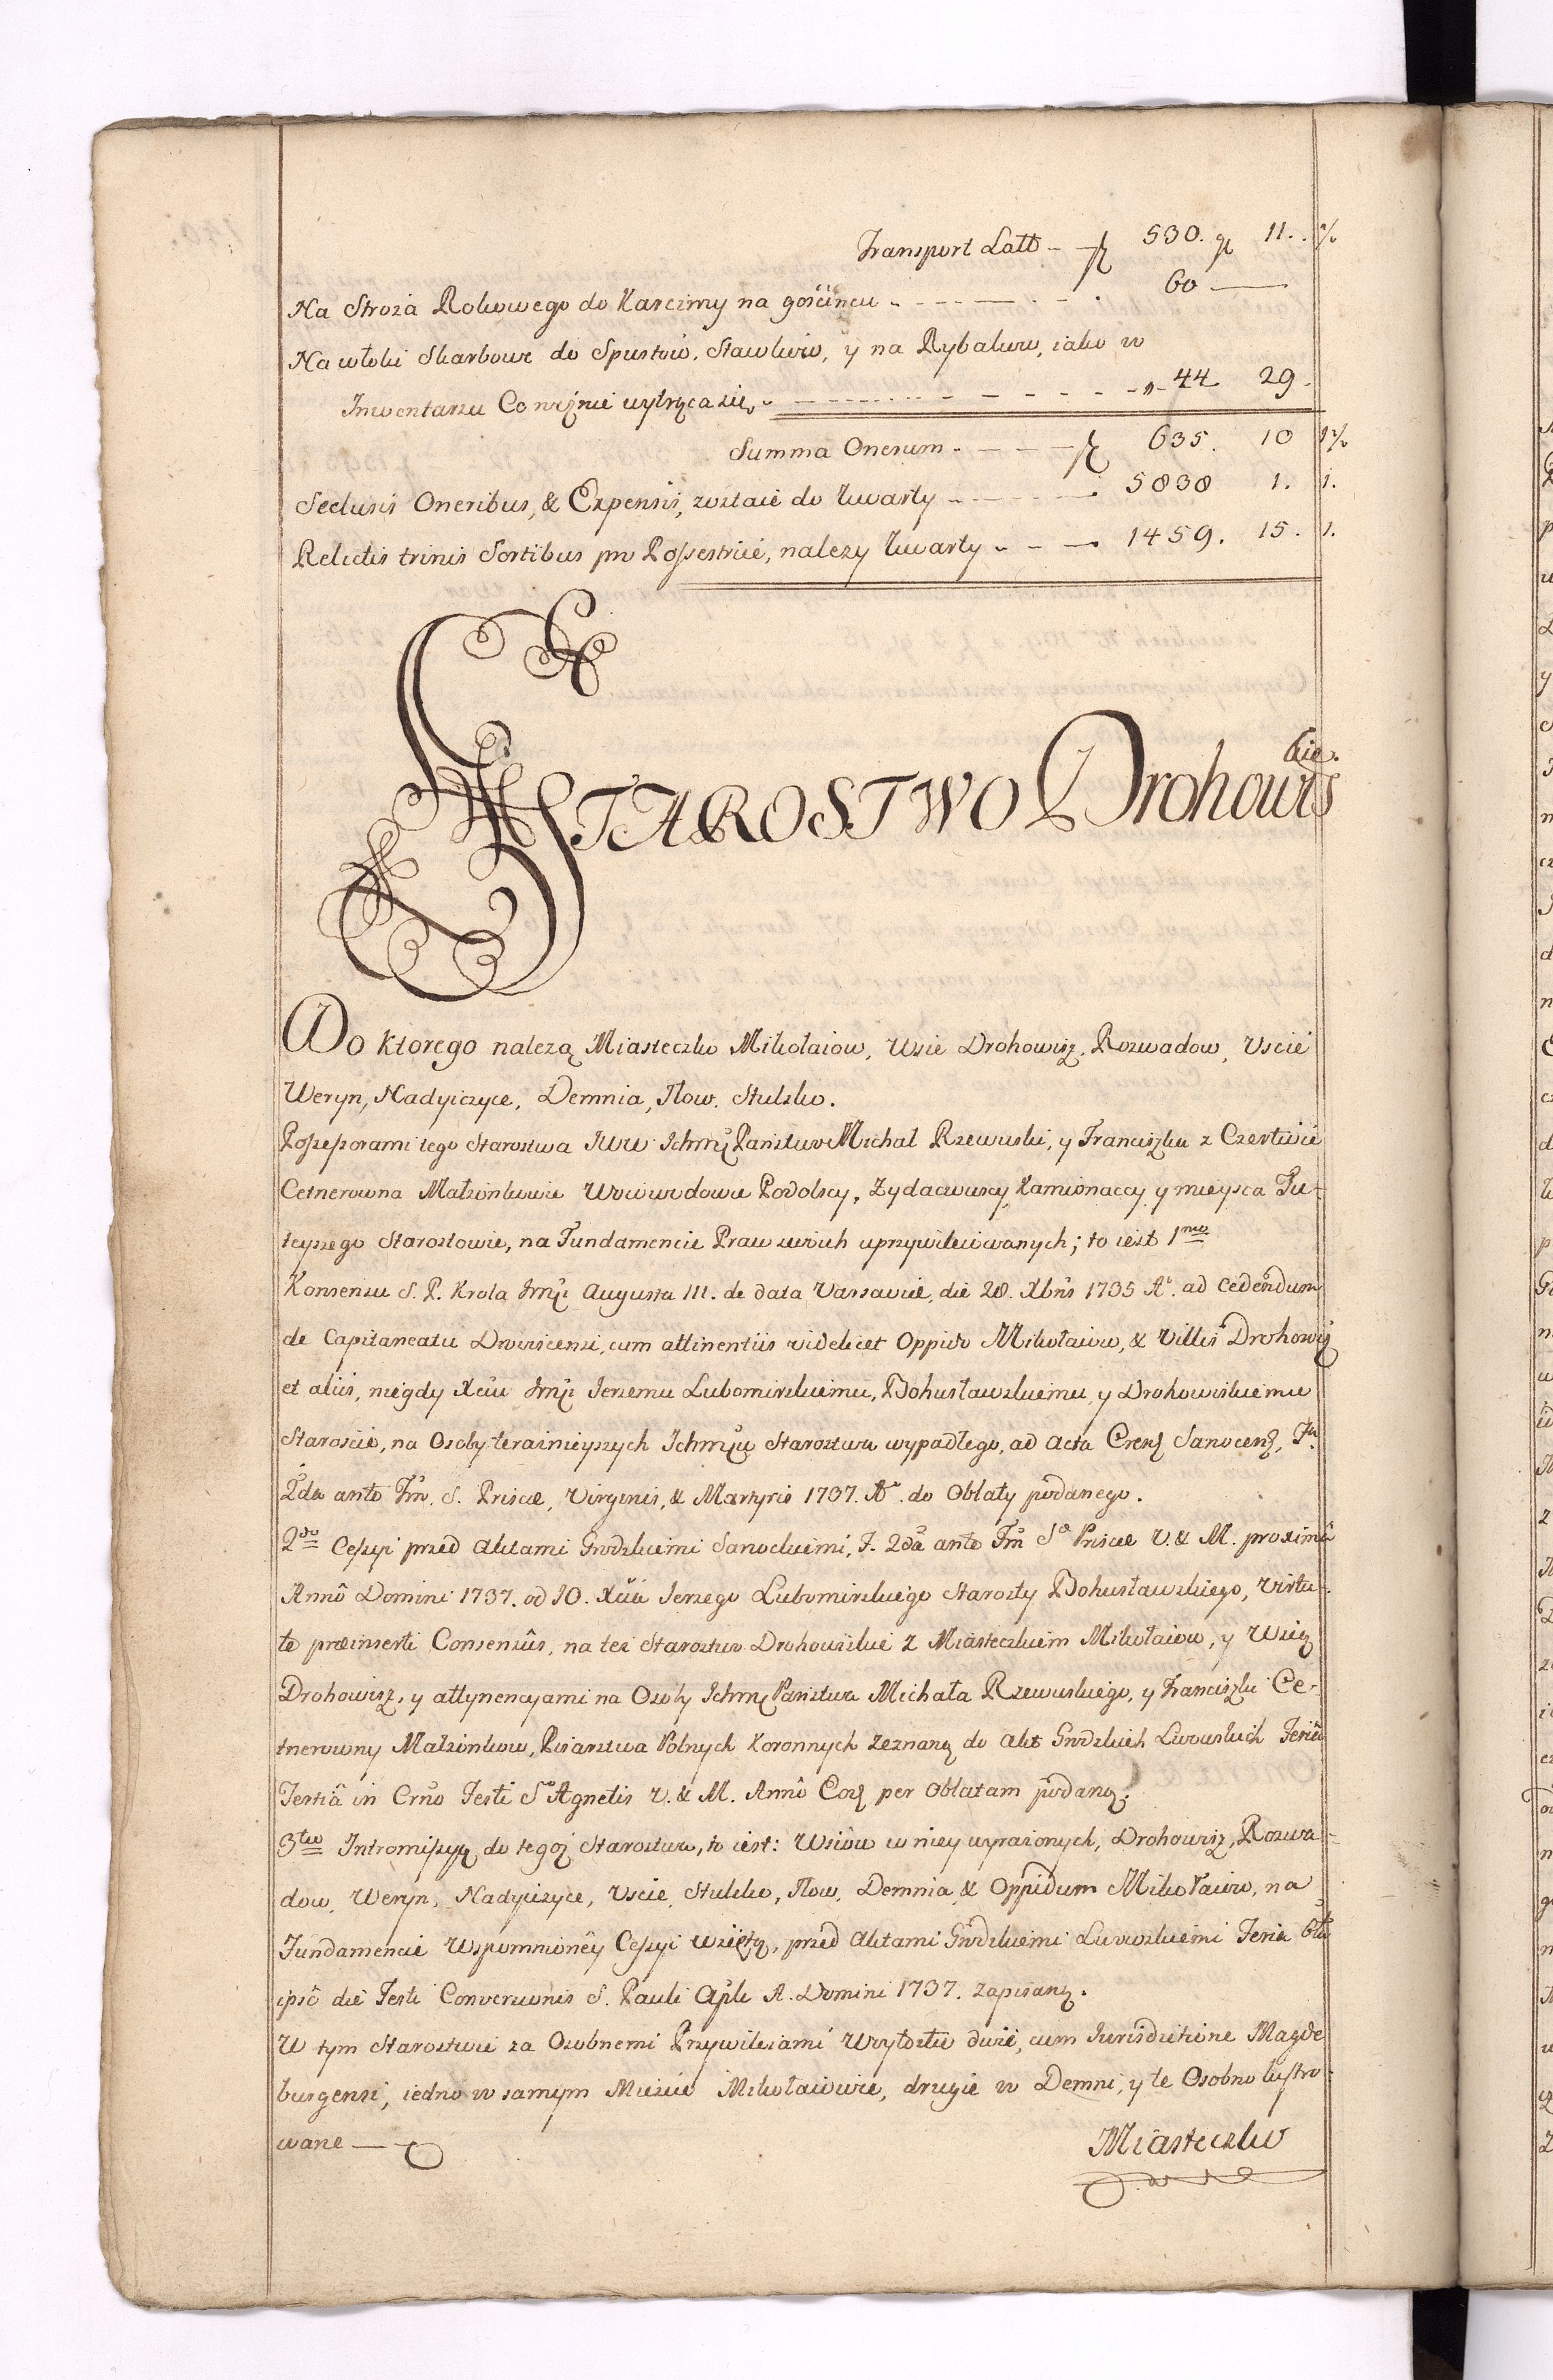 Transport Latt - fl 530. gr 11. . ½
Na Stroża Rokowego do Karczmy na gościncu - - - - - - 60 —
Na włoki Skarbowe do Spustow, Stawkow, y na Rybakow, iako w
Inwentarzu Co rożnie wytrąca się, - - - - - - - - - „ - 44 29 -
Summa Onerum - - - - fl 635. 10 1½
Seclusis Oneribus, & Expensis, zostaie do kwarty - - - - - 5838 1. 1.
Relictis trinis Sortibus pro Possestrice, nalezy kwarty - - - 1459. 15. 1.
STAROSTWO Drohowis
kie.
Do ktorego nalezą Miasteczko Mikołaiow, Wsie Drohowisz, Rozwadow, Uscie
Weryn, Nadyiczyce, Demnia, Iłow, Stulsko.
Possessorami tego Starostwa JWW Ichmć Panstwo Michał Rzewuski, y Franciszka z Czertwic
Cetnerowna Małzonkowie Woiewodowie Podolscy, Zydaczewscy, Kamionaccy y mieysca Tu-
teyszego Starostowie, na Fundamencie Praw swoich uprzywileiowanych; to iest 1mo
Konsensu S. P. Krola Jmći Augusta III. de data Varsaviæ, die 28. Xbris 1735 Ao. ad cedendum
de Capitaneatu Drovicensi, cum attinentiis videlicet Oppido Mikołaiow, & Villis Drohowisz
et aliis, niegdy Xciu Jmći Jerzemu Lubomirskiemu, Bohusławskiemu y Drohowiskiemu
Staroscie, na Osoby teraznieyszych Ichmciow Starostwa wypadłego, ad Acta Crens Sanocens, Fa
2da ante Fm. S. Priscæ, Virginis, & Martyris 1737. Ao. do Oblaty podanego.
2do Cessyi przed Aktami Grodzkiemi Sanockiemi, F. 2da ante Fm Sæ Priscæ V. & M. proxima
Anno Domini 1737. od JO. Xcia Jerzego Lubomirskiego Starosty Bohusławskiego, virtu-
te præinserti Consensus, na tez Starostwo Drohowiskie z Miasteczkiem Mikołaiow, y Wsią
Drohowisz, y attynencyami na Osoby Ichmć Panstwa Michała Rzewuskiego, y Franciszki Ce-
tnerowny Małzonkow, Pisarstwa Polnych Koronnych zeznaney do Akt Grodzkich Lwowskich Feria
Tertia in Crno Festi Sæ Agnetis V. & M. Anno Eod per Oblatam podaney.
3tio Intromissyą do tegoz Starostwa, to iest: Wsiow w niey wyrazonych, Drohowisz, Rozwa-
dow, Weryn, Nadyiczyce, Uscie, Stulsko, Iłow, Demnia & Oppidum Mikołaiow, na
Fundamencie Wspomnioney Cessyi wziętą, przed Aktami Grodzkiemi Lwowskiemi Feria 6ta
ipso die Festi Conversionis S. Pauli Apli A. Domini 1737. zapisaną.
W tym Starostwie za Osobnemi Przywileiami Woytostw dwie, cum Jurisdictione Magde
burgensi, iedno w samym Miescie Mikołaiowie, drugie w Demni, y te Osobno lustro-
wane —
Miasteczko